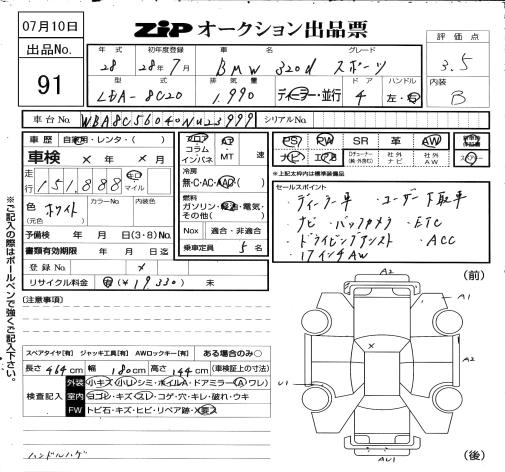 07月10日
ZIP オークション出品票
出品No.
91
評価点
3.5
内装
B
年式 初年度登録 車名 グレード
28 28年7月 BMW 320d スポーツ
型式 排気量 ドア ハンドル
LDA-8C20 1.990 ディーラー・並行 4 左・右
車台No. WBA8C56040NU23999 シリアルNo.
車歴 自家用・レンタ・( )
車検 × 年 × 月
走行 151,888 キロ マイル
色 (元色) ホワイト カラーNo. 内装色
予備検 年 月 日(3・8)No.
書類有効期限 年 月 日迄
登録No. ×
リサイクル料金 有(¥19330) 未
フロア コラム インパネ AT MT 速
冷房 無・C・AC・AAC・( )
燃料 ガソリン・軽油・電気・その他( )
Nox 適合・非適合
乗車定員 5名
PS PW SR 革 AW
ナビ エアB 社外ナビ 社外AW
※上記太枠内は標準装備品
セールスポイント
・ディーラー車 ・ユーザー下取車
・ナビ ・バックカメラ ・ETC
・ドライビングアシスト ・ACC
・17インチAW
(注意事項)
スペアタイヤ[有] ジャッキ工具[有] AWロックキー[有] ある場合のみ○
長さ 464cm 幅 180cm 高さ 144cm (車検証上の寸法)
検査記入
外装 小キズ・小U・シミ・ホイルA・ドアミラー(A ワレ)
室内 ヨゴレ・キズ・スレ・コゲ・穴・キレ・破れ・ウキ
FW トビ石・キズ・ヒビ・リペア跡・X要ス
ハンドルハゲ
※ご記入の際はボールペンで強くご記入下さい。
A2 (前)
A1
×
A2
U1
AU1 (後)